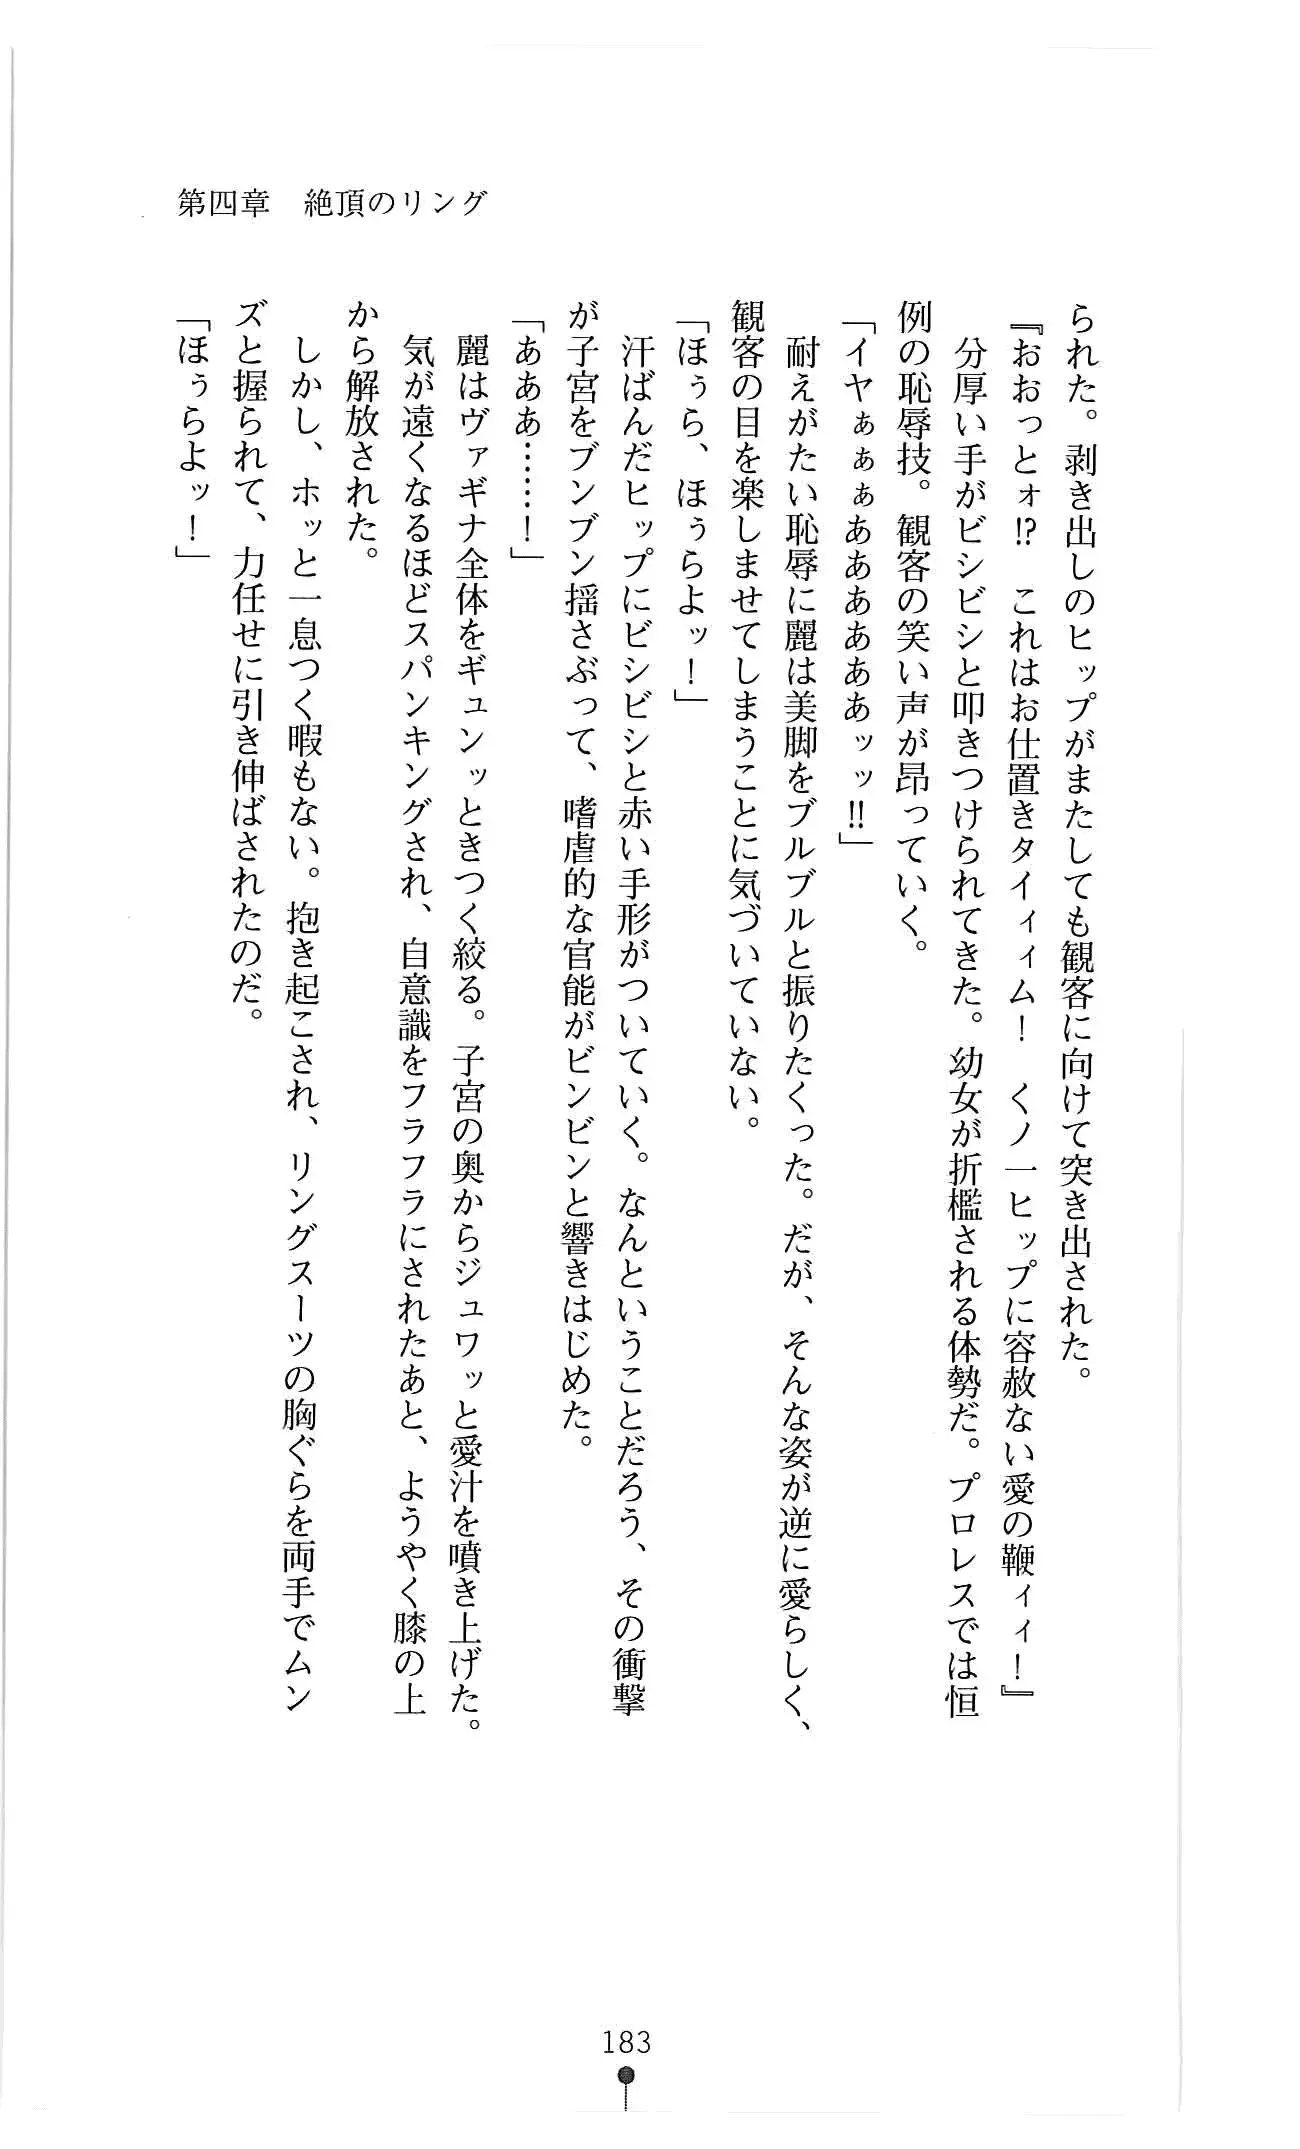 第四章　絶頂のリング
られた。剥き出しのヒップがまたしても観客に向けて突き出された。
『おおっとォ!?　これはお仕置きタイィィム！　くノ一ヒップに容赦ない愛の鞭ィィ！』
分厚い手がビシビシと叩きつけられてきた。幼女が折檻される体勢だ。プロレスでは恒
例の恥辱技。観客の笑い声が昂っていく。
「イヤぁぁぁああああああッッ!!」
耐えがたい恥辱に麗は美脚をブルブルと振りたくった。だが、そんな姿が逆に愛らしく、
観客の目を楽しませてしまうことに気づいていない。
「ほぅら、ほぅらよッ！」
汗ばんだヒップにビシビシと赤い手形がついていく。なんということだろう、その衝撃
が子宮をブンブン揺さぶって、嗜虐的な官能がビンビンと響きはじめた。
「あああ……！」
麗はヴァギナ全体をギュンッときつく絞る。子宮の奥からジュワッと愛汁を噴き上げた。
気が遠くなるほどスパンキングされ、自意識をフラフラにされたあと、ようやく膝の上
から解放された。
しかし、ホッと一息つく暇もない。抱き起こされ、リングスーツの胸ぐらを両手でムン
ズと握られて、力任せに引き伸ばされたのだ。
「ほぅらよッ！」
183